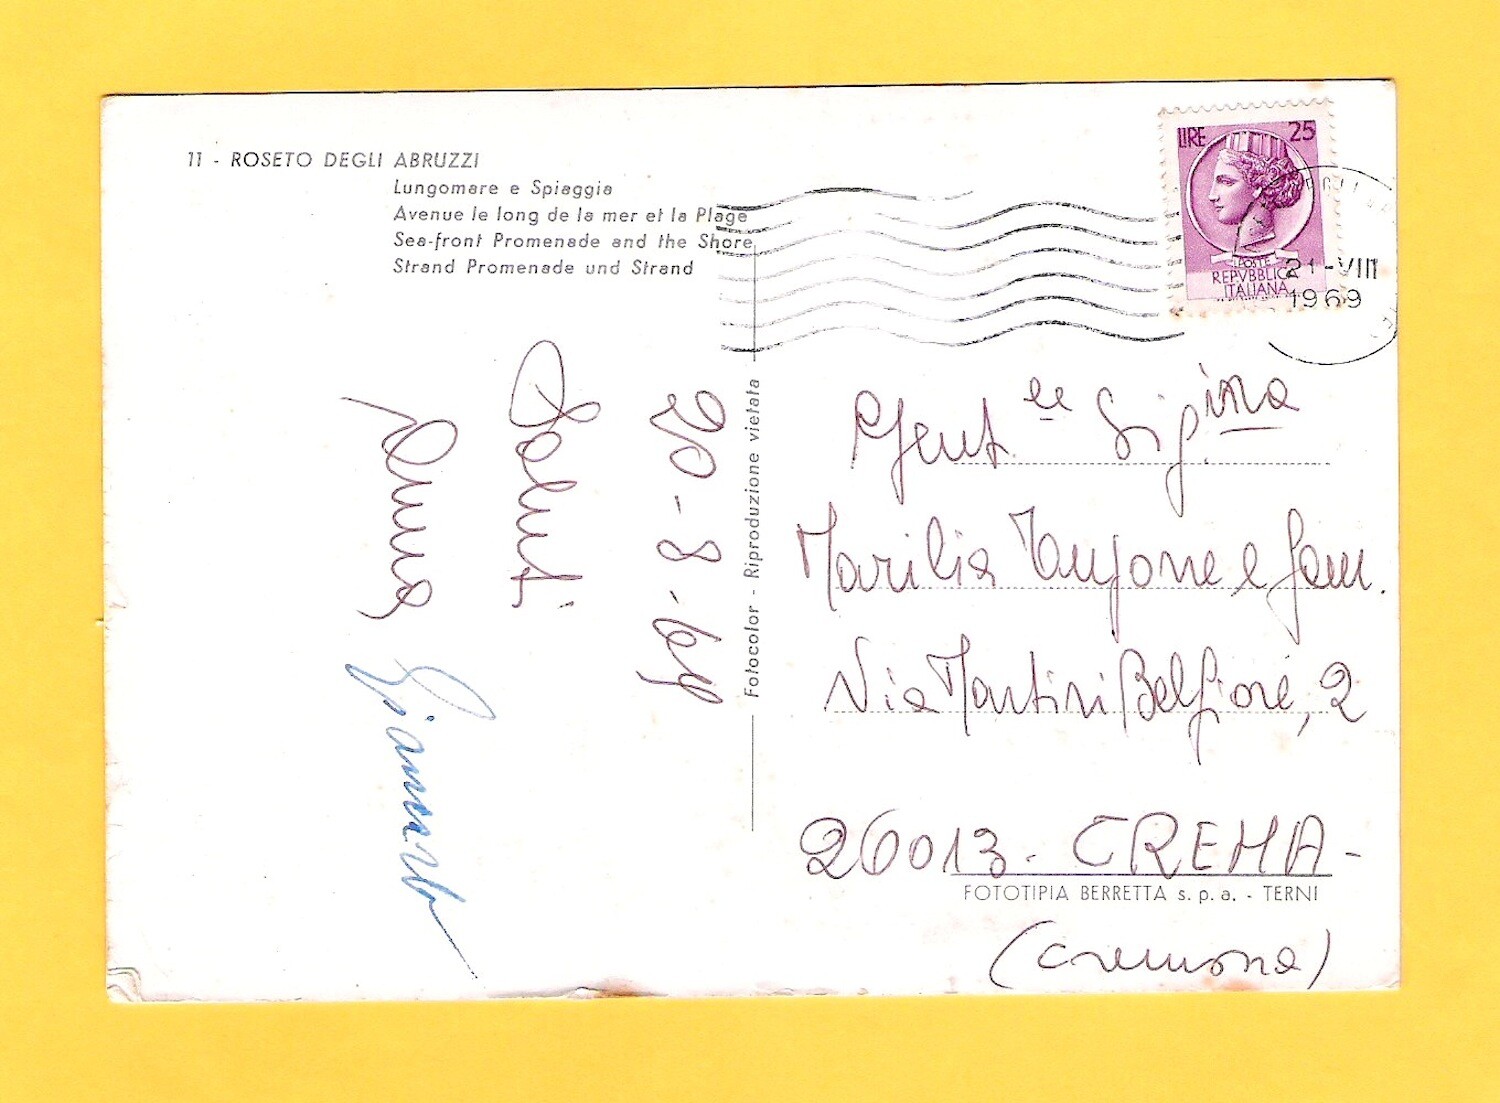 11 - ROSETO DEGLI ABRUZZI
Lungomare e Spiaggia
Avenue le long de la mer et la Plage
Sea-front Promenade and the Shore
Strand Promenade und Strand
LIRE 25
POSTE
REPVBBLICA
ITALIANA
21-VIII
1969
20-8-69
Saluti
Anna
Fotocolor - Riproduzione vietata
Gent.le Sig.ina
Marilia e Fam.
Via Martini Belfiore, 2
26013 - CREMA -
FOTOTIPIA BERRETTA s.p.a. - TERNI
(Cremona)